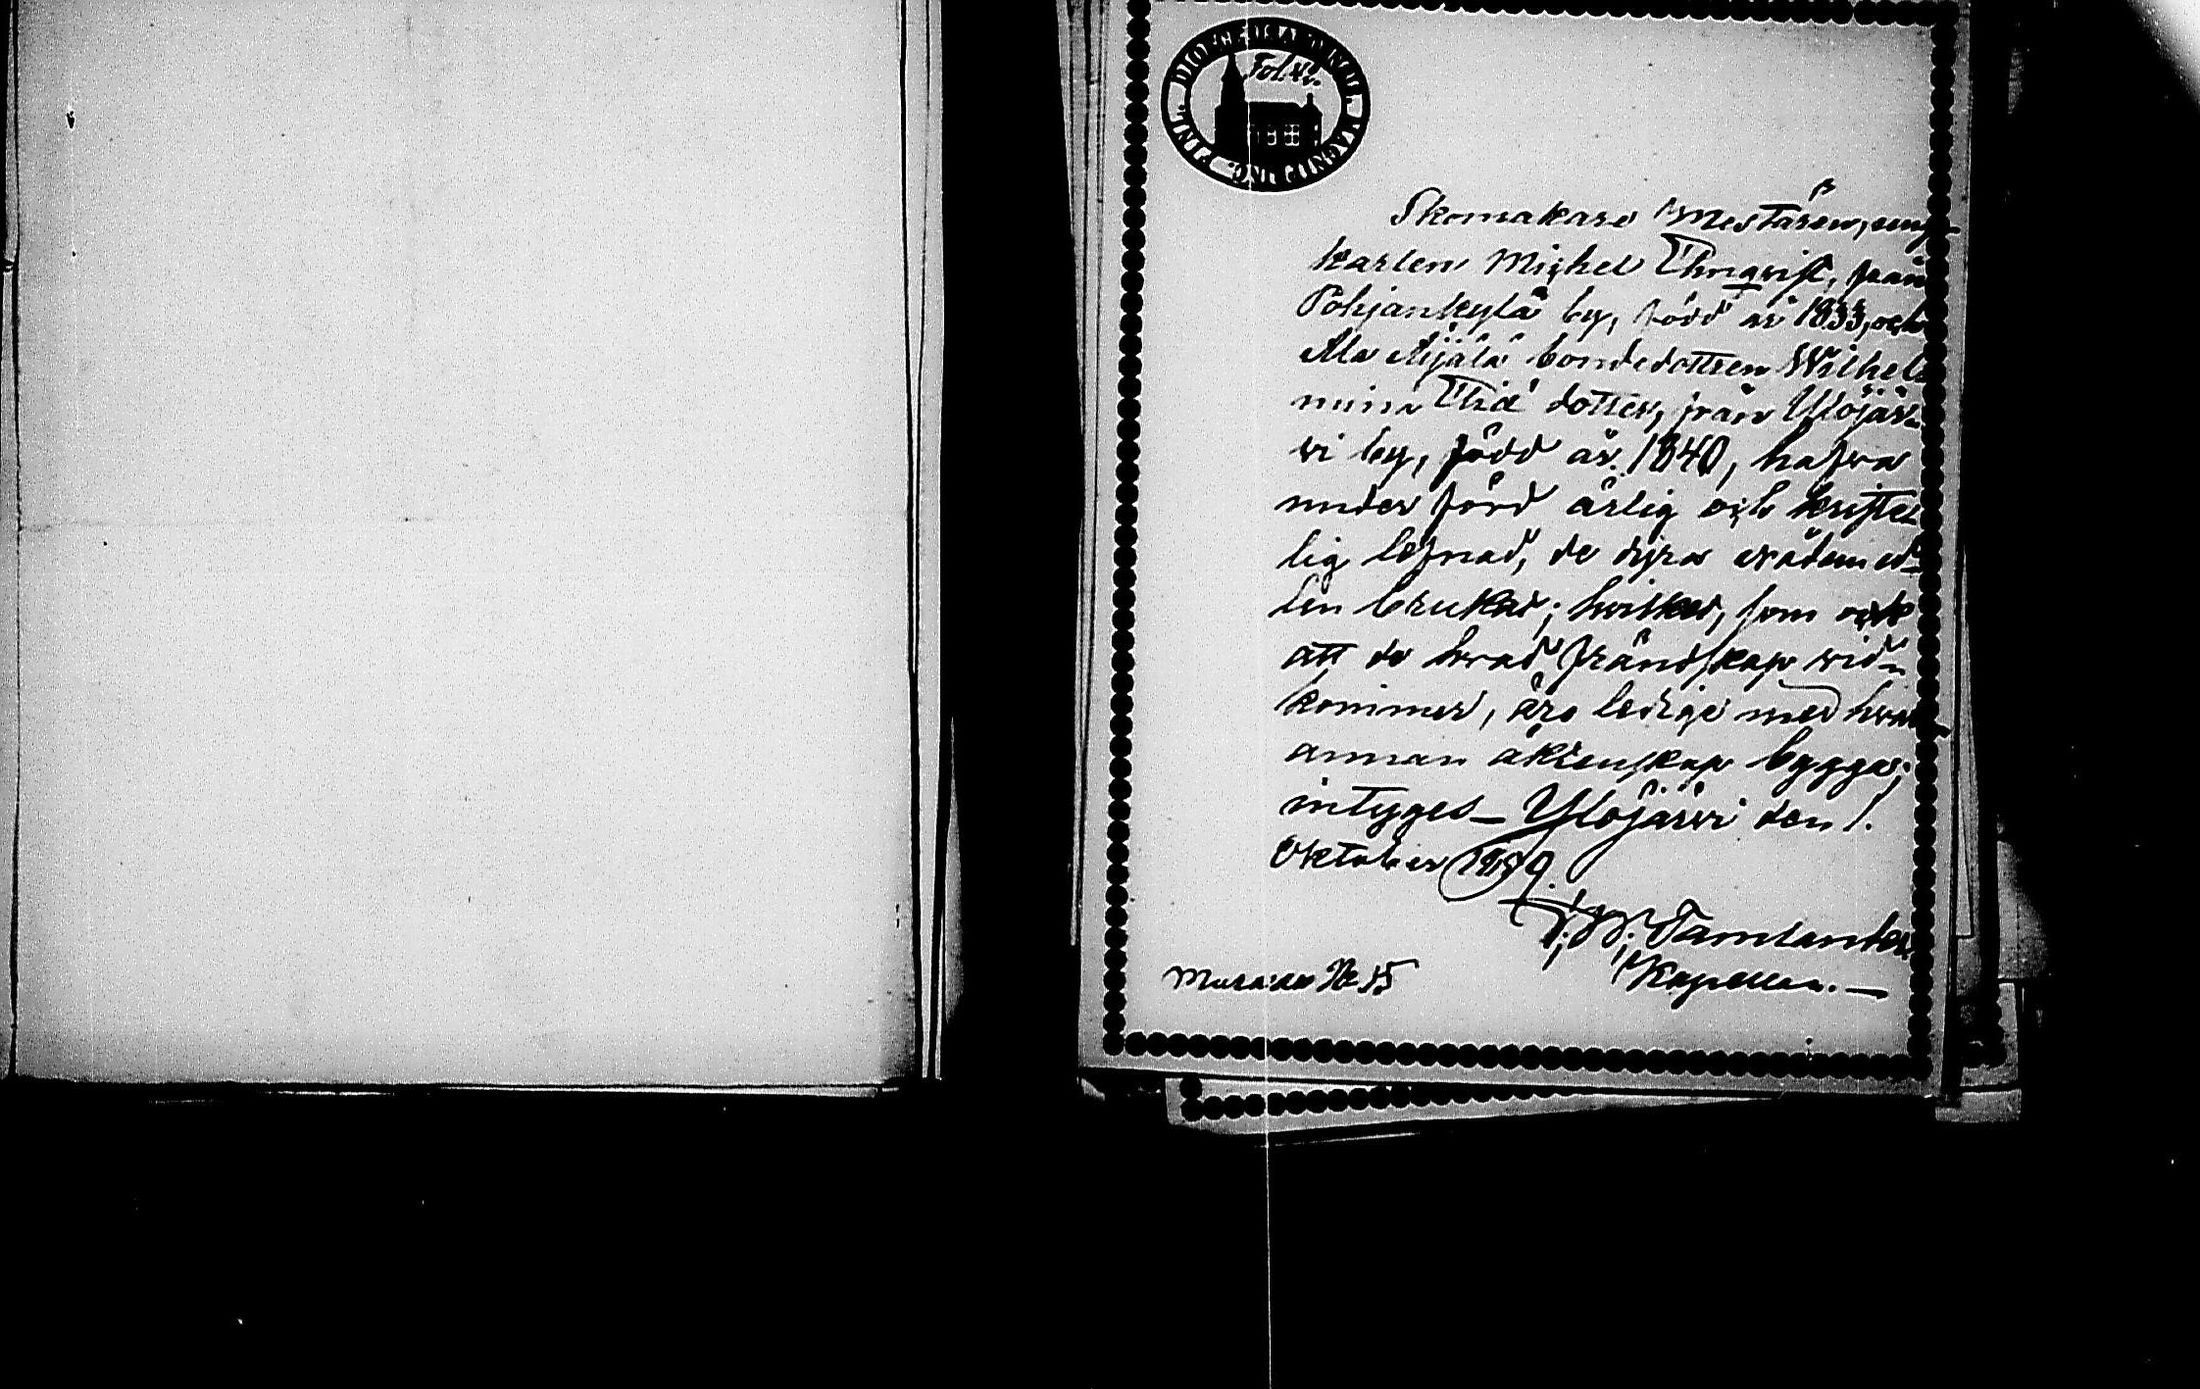 Fol. 42.
Skomakare Mästaren, ung-
karlen Michel Thnqvist, från
Pohjankylä by, född år 1833, och
Ala Äijälä bondedottren Wilhel-
mina dotter, från Ylöjär-
vi by, född år 1840, hafva
under förd ärlig och kristel-
lig lefnad, de dyra nådemed-
len brukat; hvilket, som ock
att de hvad frändskap vid-
kommer, äro ledige med hvar-
annan äktenskap bygga;
intyges_ Ylöjärvi den 1.
Oktober 1859.
Tamlander
Kapellan. —